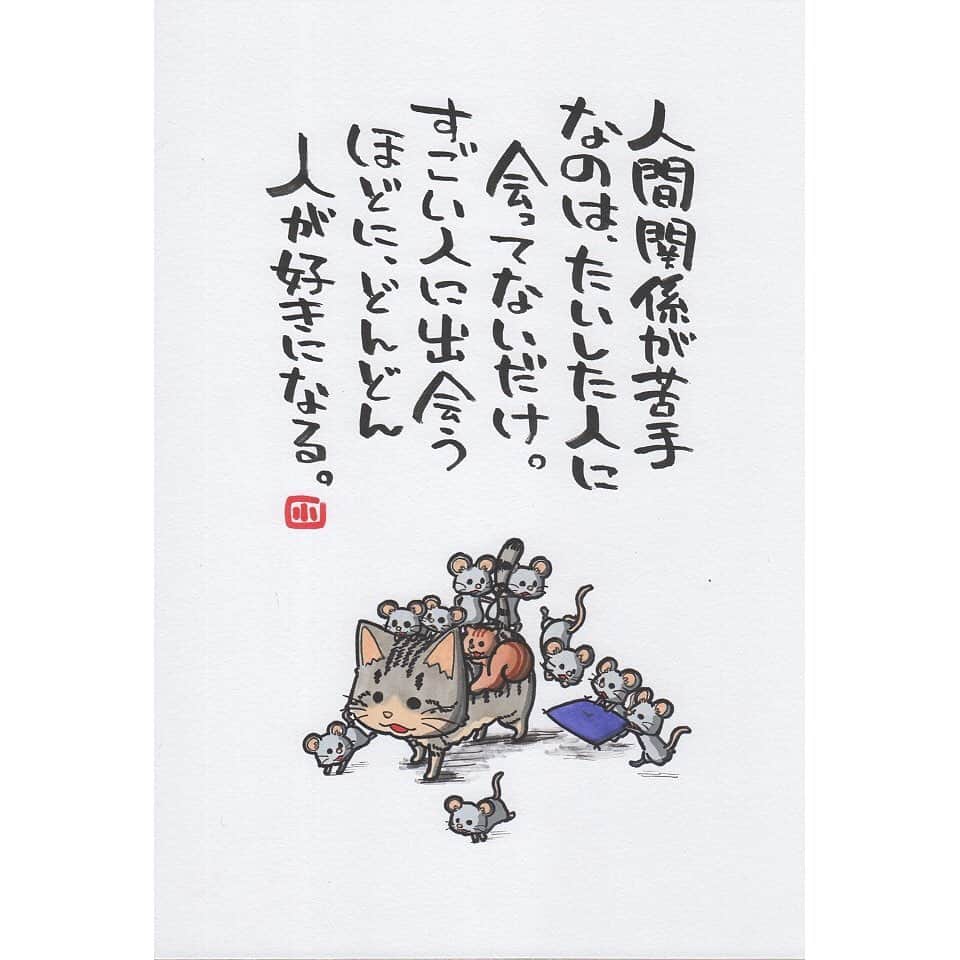 人間関係が苦手
なのは、たいした人に
会ってないだけ。
すごい人に出会う
ほどに、どんどん
人が好きになる。
小